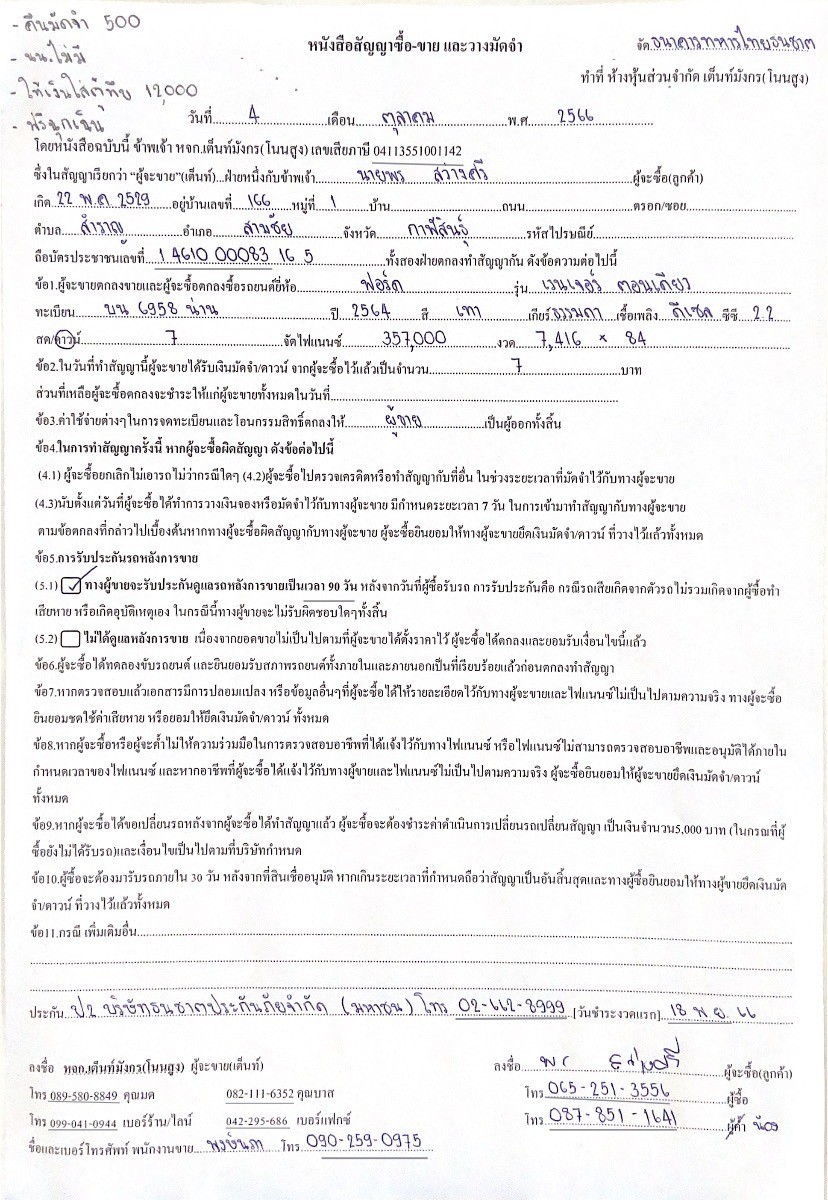 - คืนมัดจำ 500
- นน.ไม่มี
- ให้เงินใส่ตู้ทึบ 12,000
- ฟรีฉุกเฉิน
หนังสือสัญญาซื้อ-ขาย และวางมัดจำ
จัด ธนาคารทหารไทยธนชาต
ทำที่ ห้างหุ้นส่วนจำกัด เต็นท์มังกร(โนนสูง)
วันที่ 4 เดือน ตุลาคม พ.ศ. 2566
โดยหนังสือฉบับนี้ ข้าพเจ้า หจก.เต็นท์มังกร(โนนสูง) เลขเสียภาษี 04113551001142
ซึ่งในสัญญาเรียกว่า “ผู้จะขาย”(เต็นท์)...ฝ่ายหนึ่งกับข้าพเจ้า นายพร สว่างศรี ผู้จะซื้อ(ลูกค้า)
เกิด 22 พ.ค 2529 อยู่บ้านเลขที่ 166 หมู่ที่ 1 บ้าน ถนน ตรอก/ซอย
ตำบล สำราญ อำเภอ สามชัย จังหวัด กาฬสินธุ์ รหัสไปรษณีย์
ถือบัตรประชาชนเลขที่ 1 4610 00083 16 5 ทั้งสองฝ่ายตกลงทำสัญญากัน ดังข้อความต่อไปนี้
ข้อ1.ผู้จะขายตกลงขายและผู้จะซื้อตกลงซื้อรถยนต์ยี่ห้อ ฟอร์ด รุ่น เรนเจอร์ ตอนเดียว
ทะเบียน บน 6958 น่าน ปี 2564 สี เทา เกียร์ ธรรมดา เชื้อเพลิง ดีเซล ซีซี 2.2
สด/ดาวน์ 7 จัดไฟแนนซ์ 357,000 งวด 7,416 × 84
ข้อ2.ในวันที่ทำสัญญานี้ผู้จะขายได้รับเงินมัดจำ/ดาวน์ จากผู้จะซื้อไว้แล้วเป็นจำนวน 7 บาท
ส่วนที่เหลือผู้จะซื้อตกลงจะชำระให้แก่ผู้จะขายทั้งหมดในวันที่
ข้อ3.ค่าใช้จ่ายต่างๆในการจดทะเบียนและโอนกรรมสิทธิ์ตกลงให้ ผู้ขาย เป็นผู้ออกทั้งสิ้น
ข้อ4.ในการทำสัญญาครั้งนี้ หากผู้จะซื้อผิดสัญญา ดังข้อต่อไปนี้
(4.1) ผู้จะซื้อยกเลิกไม่เอารถไม่ว่ากรณีใดๆ (4.2)ผู้จะซื้อไปตรวจเครดิตหรือทำสัญญากับที่อื่น ในช่วงระยะเวลาที่มัดจำไว้กับทางผู้จะขาย
(4.3)นับตั้งแต่วันที่ผู้จะซื้อได้ทำการวางเงินจองหรือมัดจำไว้กับทางผู้จะขาย มีกำหนดระยะเวลา 7 วัน ในการเข้ามาทำสัญญากับทางผู้จะขาย
ตามข้อตกลงที่กล่าวไปเบื้องต้นหากทางผู้จะซื้อผิดสัญญากับทางผู้จะขาย ผู้จะซื้อยินยอมให้ทางผู้จะขายยึดเงินมัดจำ/ดาวน์ ที่วางไว้แล้วทั้งหมด
ข้อ5.การรับประกันรถหลังการขาย
(5.1) ทางผู้ขายจะรับประกันดูแลรถหลังการขายเป็นเวลา 90 วัน หลังจากวันที่ผู้ซื้อรับรถ การรับประกันคือ กรณีรถเสียเกิดจากตัวรถไม่รวมเกิดจากผู้ซื้อทำ
เสียหาย หรือเกิดอุบัติเหตุเอง ในกรณีนี้ทางผู้ขายจะไม่รับผิดชอบใดๆทั้งสิ้น
(5.2) ไม่ได้ดูแลหลังการขาย เนื่องจากยอดขายไม่เป็นไปตามที่ผู้จะขายได้ตั้งราคาไว้ ผู้จะซื้อได้ตกลงและยอมรับเงื่อนไขนี้แล้ว
ข้อ6.ผู้จะซื้อได้ทดลองขับรถยนต์ และยินยอมรับสภาพรถยนต์ทั้งภายในและภายนอกเป็นที่เรียบร้อยแล้วก่อนตกลงทำสัญญา
ข้อ7.หากตรวจสอบแล้วเอกสารมีการปลอมแปลง หรือข้อมูลอื่นๆที่ผู้จะซื้อได้ให้รายละเอียดไว้กับทางผู้จะขายและไฟแนนซ์ไม่เป็นไปตามความจริง ทางผู้จะซื้อ
ยินยอมชดใช้ค่าเสียหาย หรือยอมให้ยึดเงินมัดจำ/ดาวน์ ทั้งหมด
ข้อ8.หากผู้จะซื้อหรือผู้จะค้ำไม่ให้ความร่วมมือในการตรวจสอบอาชีพที่ได้แจ้งไว้กับทางไฟแนนซ์ หรือไฟแนนซ์ไม่สามารถตรวจสอบอาชีพและอนุมัติได้ภายใน
กำหนดเวลาของไฟแนนซ์ และหากอาชีพที่ผู้จะซื้อได้แจ้งไว้กับทางผู้จะขายและไฟแนนซ์ไม่เป็นไปตามความจริง ผู้จะซื้อยินยอมให้ผู้จะขายยึดเงินมัดจำ/ดาวน์
ทั้งหมด
ข้อ9.หากผู้จะซื้อได้ขอเปลี่ยนรถหลังจากผู้จะซื้อได้ทำสัญญาแล้ว ผู้จะซื้อจะต้องชำระค่าดำเนินการเปลี่ยนรถเปลี่ยนสัญญา เป็นเงินจำนวน5,000 บาท (ในกรณที่ผู้
ซื้อยังไม่ได้รับรถ)และเงื่อนไขเป็นไปตามที่บริษัทกำหนด
ข้อ10.ผู้ซื้อจะต้องมารับรถภายใน 30 วัน หลังจากที่สินเชื่ออนุมัติ หากเกินระยะเวลาที่กำหนดถือว่าสัญญาเป็นอันสิ้นสุดและทางผู้ซื้อยินยอมให้ทางผู้ขายยึดเงินมัด
จำ/ดาวน์ ที่วางไว้แล้วทั้งหมด
ข้อ11.กรณี เพิ่มเติมอื่น
ประกัน ป2 บริษัทธนชาตประกันภัยจำกัด (มหาชน) โทร 02-662-8999 [วันชำระงวดแรก] 18 พ.ย. 66
ลงชื่อ หจก.เต็นท์มังกร(โนนสูง) ผู้จะขาย(เต็นท์) ลงชื่อ พร สว่างศรี ผู้จะซื้อ(ลูกค้า)
โทร 089-580-8849 คุณมด 082-111-6352 คุณบาส โทร 065-251-3556 ผู้ซื้อ
โทร 099-041-0944 เบอร์ร้าน/ไลน์ 042-295-686 เบอร์แฟกซ์ โทร 087-851-1641 ผู้ค้ำ น้อง
ชื่อและเบอร์โทรศัพท์ พนักงานขาย โทร 090-259-0975